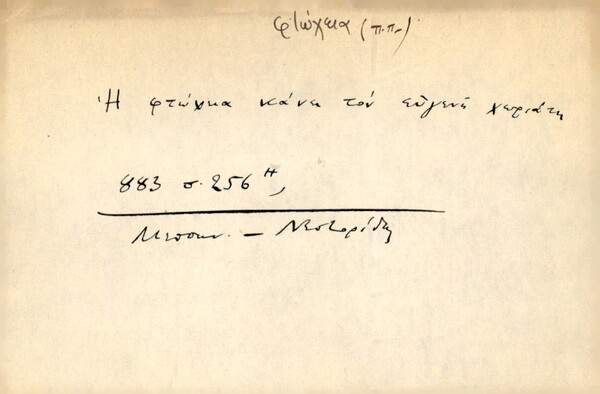 φτώχεια (π.π.)
Ἡ φτώχεια κάνει τόν εὐγενῆ χωριάτη
883 σ. 256 Η,
Μεσσην. – Νεστορίδης